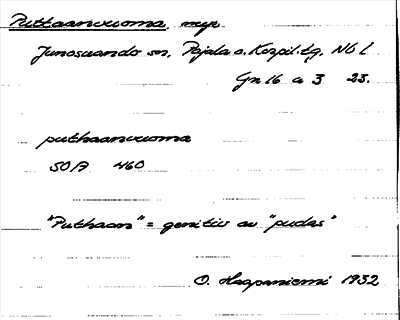 Puttaanvuoma, myr
Junosuando sn, Pajala o. Korpil. tg, Nb l
Gn 16 a 3 23.
puthaanvuoma
SOA 460
"Puthaan" = genitiv av "pudas"
O. Haapaniemi 1932